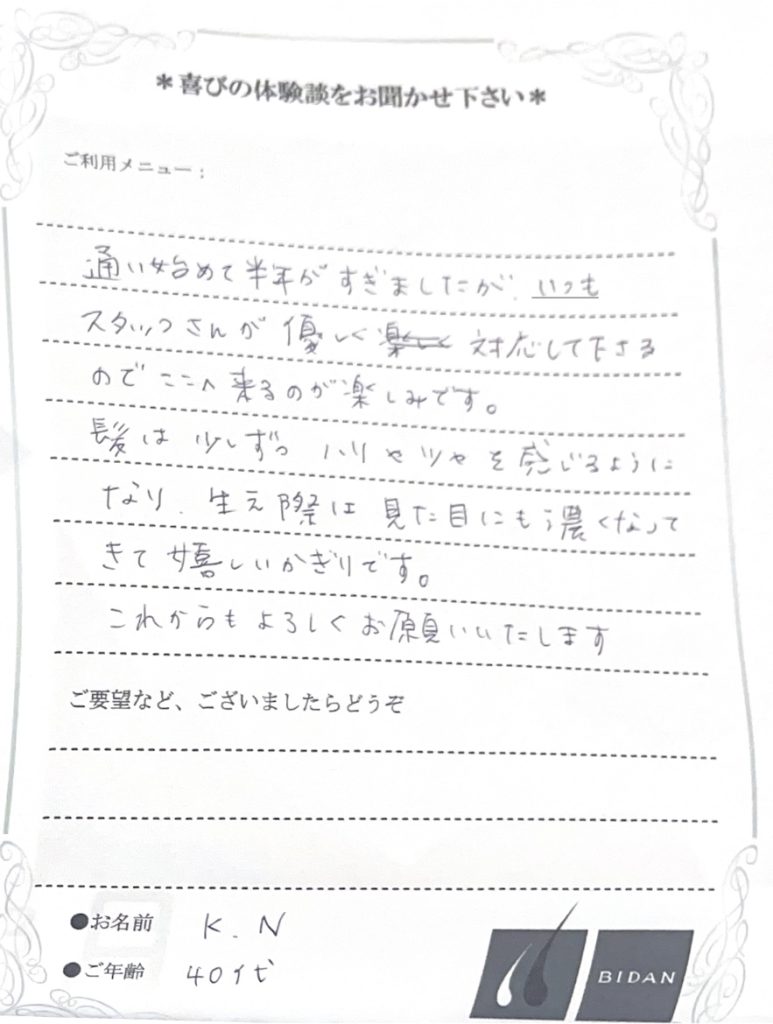 ＊喜びの体験談をお聞かせ下さい＊
ご利用メニュー：
通い始めて半年がすぎましたが、いつも
スタッフさんが優しく 対応して下さる
のでここへ来るのが楽しみです。
髪は少しずつ ハリやツヤを感じるように
なり、生え際は見た目にも濃くなって
きて嬉しいかぎりです。
これからもよろしくお願いいたします
ご要望など、ございましたらどうぞ
●お名前 K.N
●ご年齢 40代
BIDAN